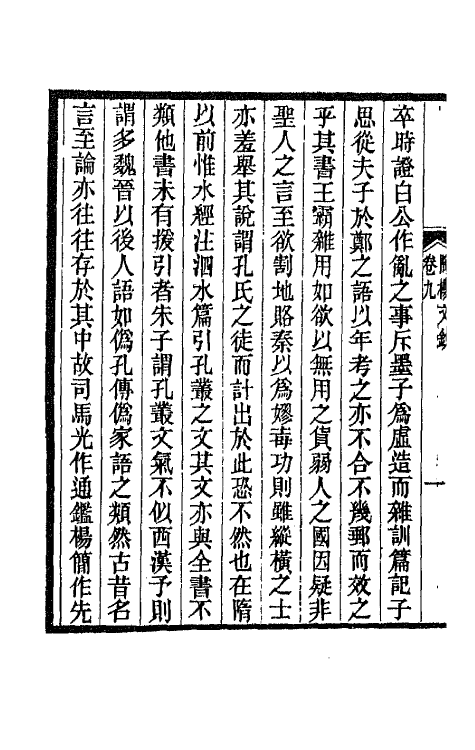 卒時證白公作亂之事斥墨子爲虛造而雜訓篇記子
思從夫子於鄭之語以年考之亦不合不幾郵而效之
乎其書王霸雜用如欲以無用之貨弱人之國因疑非
聖人之言至欲割地賂秦以爲嫪毐功則雖縱橫之士
亦羞舉其說謂孔氏之徒而計出於此恐不然也在隋
以前惟水經注泗水篇引孔叢之文其文亦與全書不
類他書未有援引者朱子謂孔叢文氣不似西漢予則
謂多魏晉以後人語如僞孔傳僞家語之類然古昔名
言至論亦往往存於其中故司馬光作通鑑楊簡作先
卷九
一